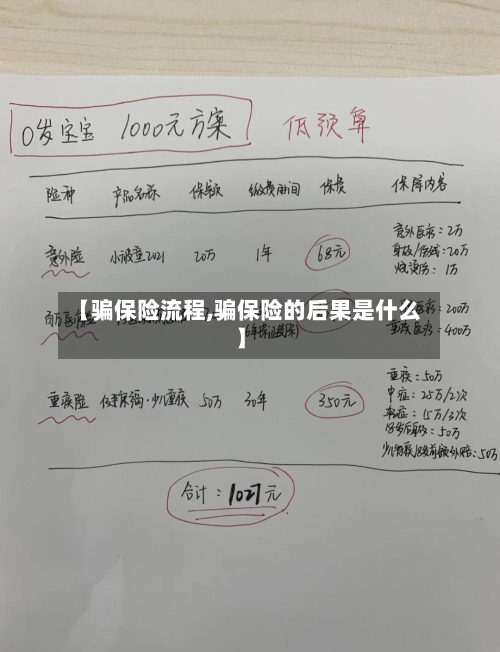 0岁宝宝 1000元方案 低预算
险种 产品名称 保额 缴费期间 保费 保障内容
意外险 小顽童2021 20万 1年 68元
意外医疗：2万
身故/伤残：20万
烧烫伤：1万
【骗保险流程,骗保险的后果是什么
】
医疗：200万
重疾医疗：400万
重疾险 少儿重疾 50万 30年 350元
重疾：50万
中症：25万/2次
轻症：15万/3次
18岁后身故：50万
额外赔：50万
合计：1027元